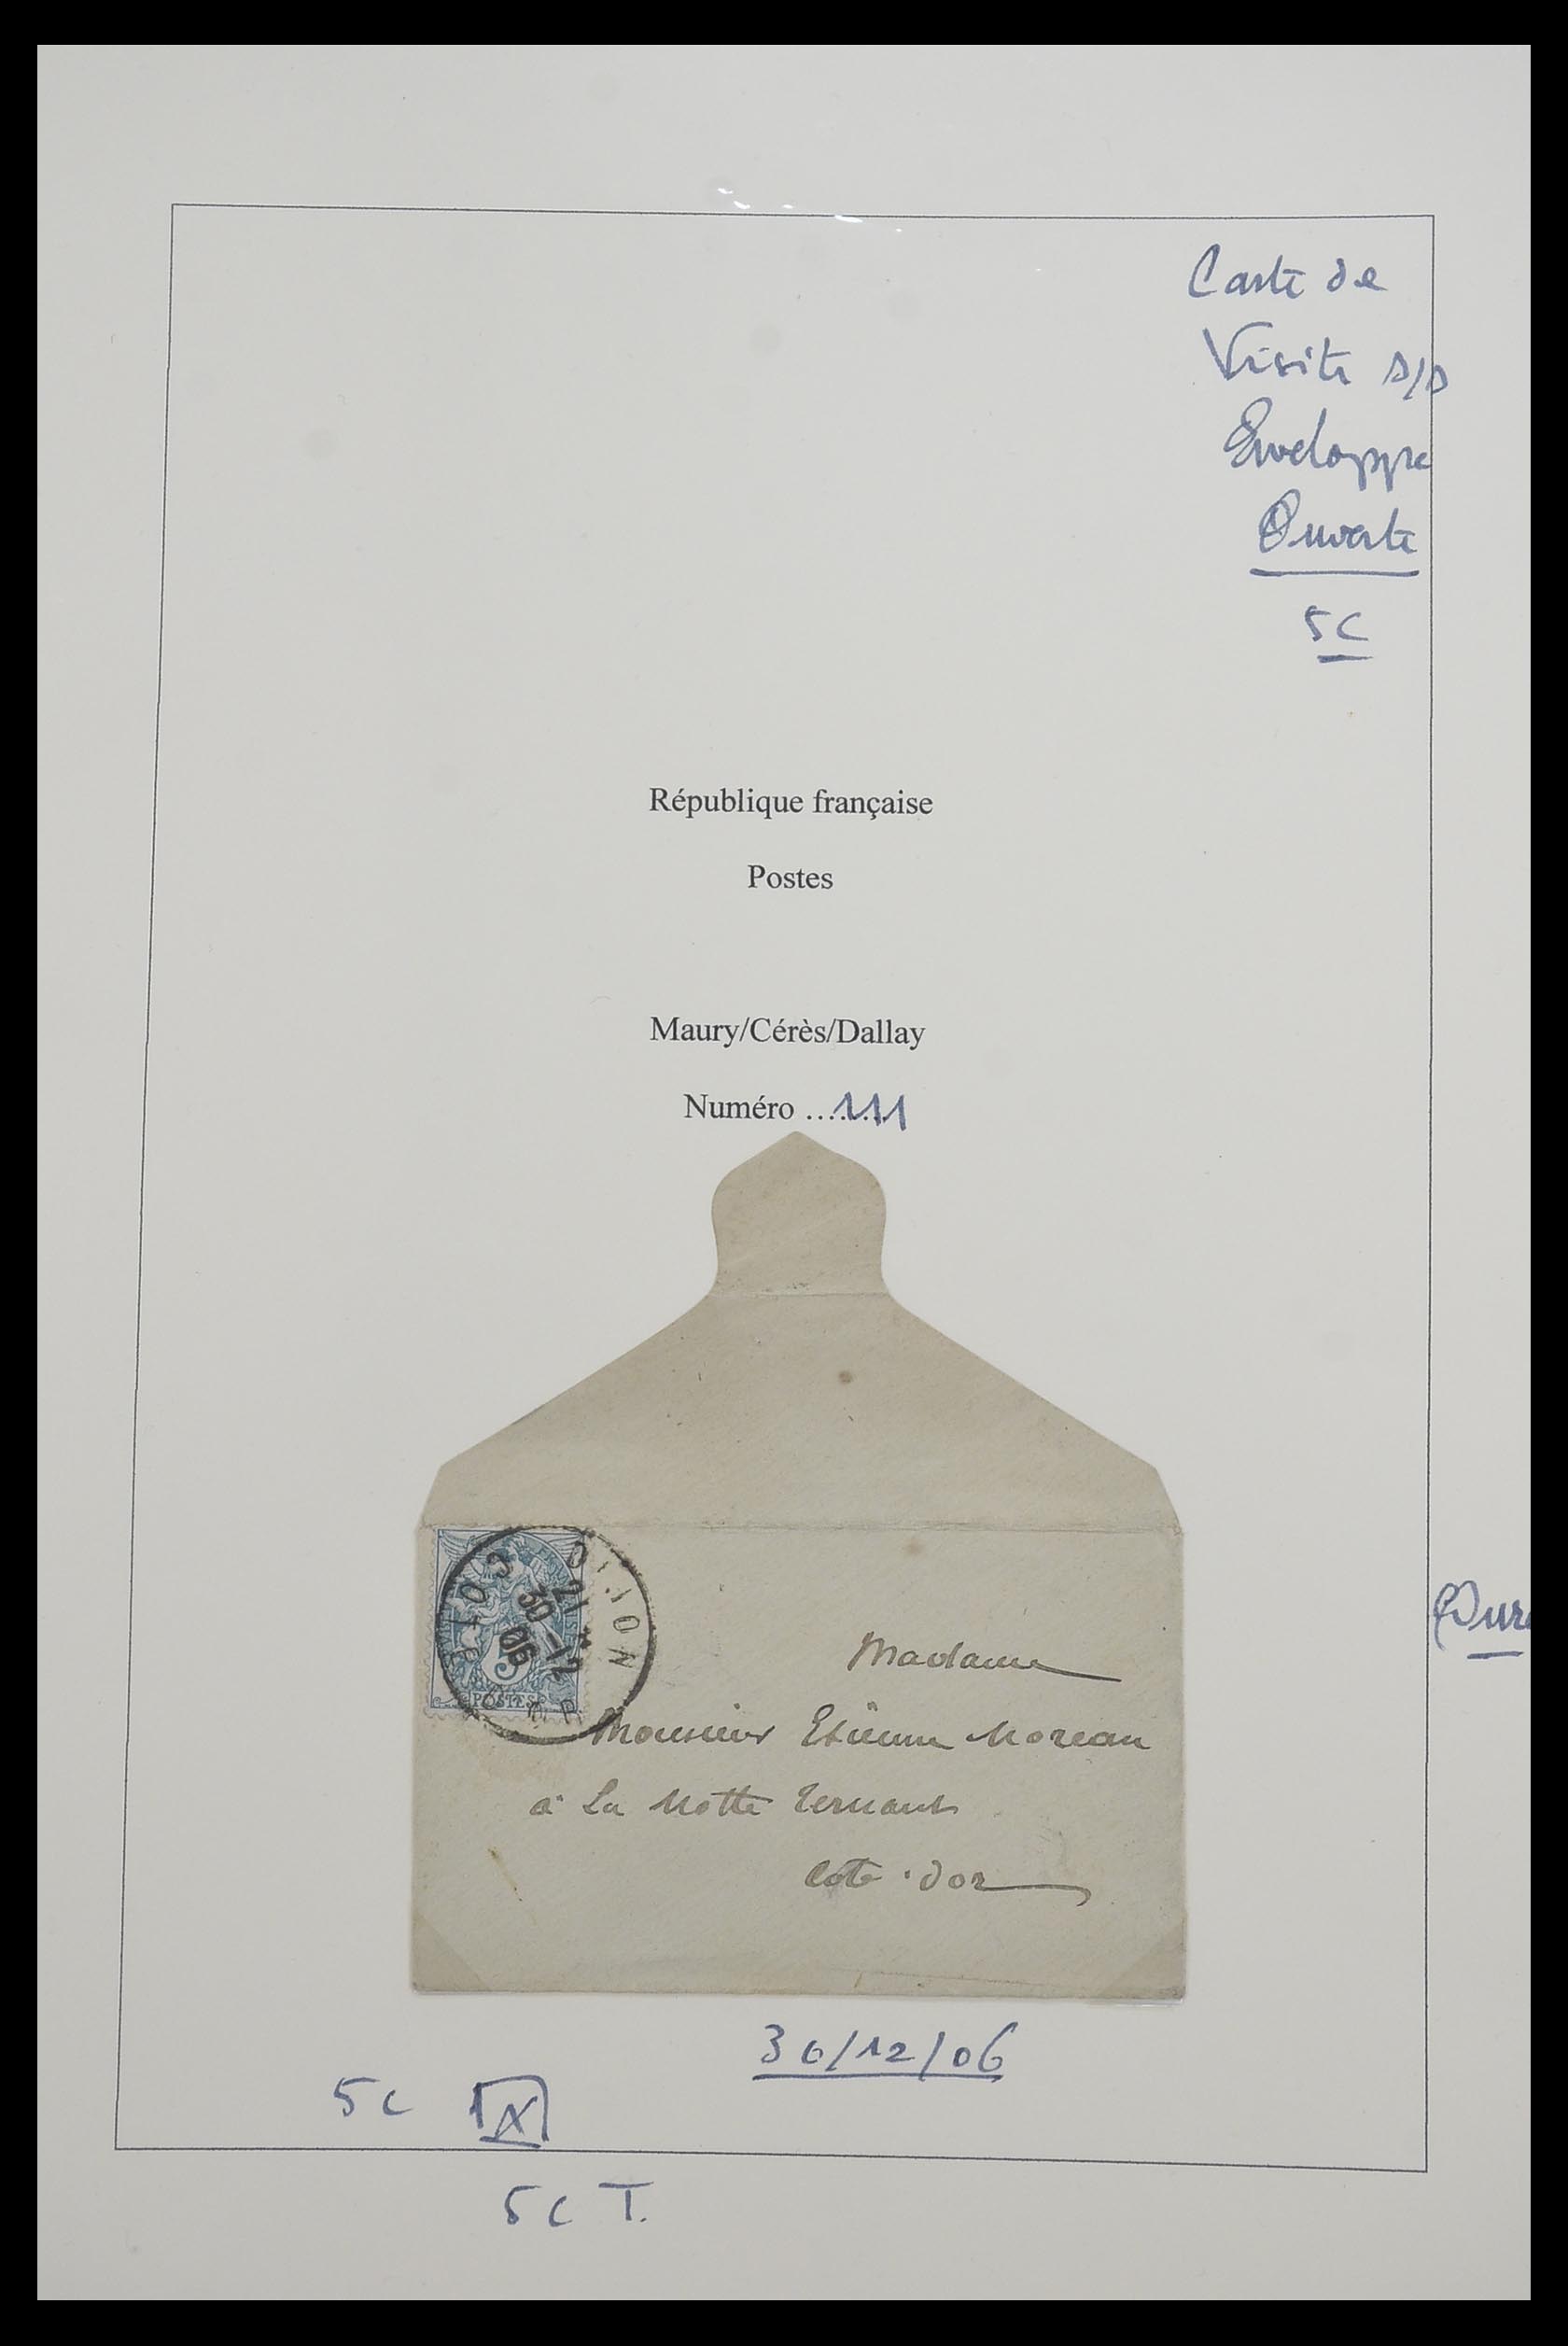 Carte de
Visite s/s
Enveloppe
Ouverte
5C
République française
Postes
Maury/Cérès/Dallay
Numéro ....111
DIJON
COTE D'OR
21 *
30 -12
06
5
POSTES
Madame
Monsieur Etienne Moreau
à La Motte Ternant
Cote-d'or
30/12/06
5c
5c T.